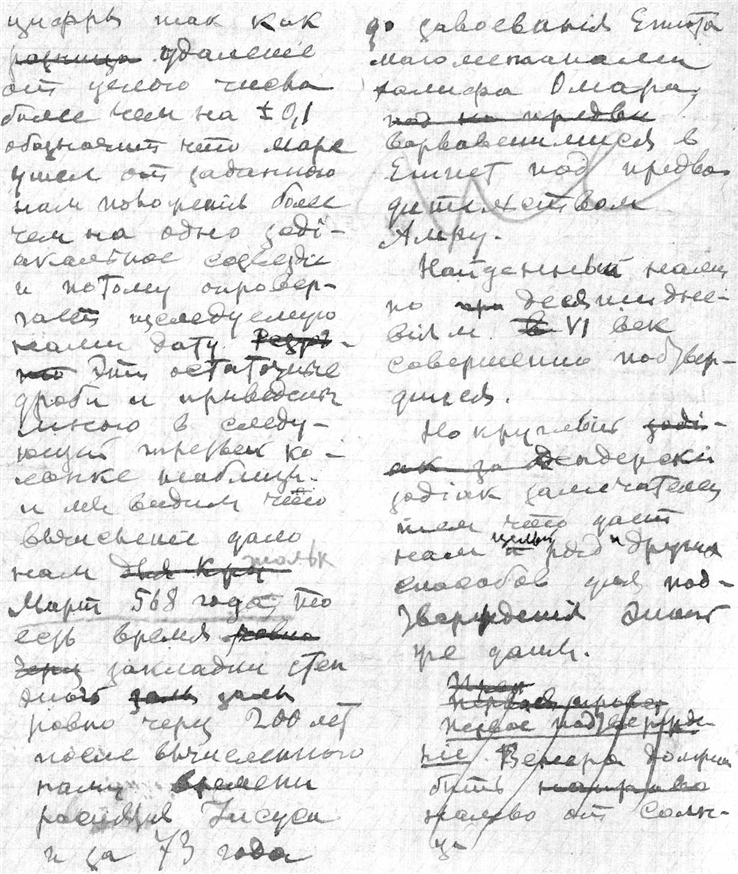 цифры так как
разница удаление
от целого числа
более чем на ± 0,1
обозначит что марс
ушел от заданною
нам поворенія более
чем на одно зоді-
акальное созвездіе
и потому опровер-
гает изследуемую
нами дату.
Эти остаточные
дроби и приведены
мною в следу-
ющий третьей ко-
лонке таблицы.
и мы видим что
вычисленіе дало
нам только
Март 568 года то
есть время ровно
через закладки стен
этой залы
ровно через 200 лет
после вычисленного
нами времени
распятия Іисуса
и за 73 года
до завоеванія Египта
магометанами
халифа Омара,
под на предв
ворвавшимися в
Египет под предво-
дительством
Амру.
Найденный нами
по десяти дне-
віям VI век
совершенно подтвер-
дился.
Но круглый зоді-
ак за Дендерскій
зодіак замечателен
тем что дает
нам целый ряд и других
способов для под-
тверждения этой
же даты.
Первое подтвержде-
ніе Венера должна
быть направо
налево от Солн-
ца